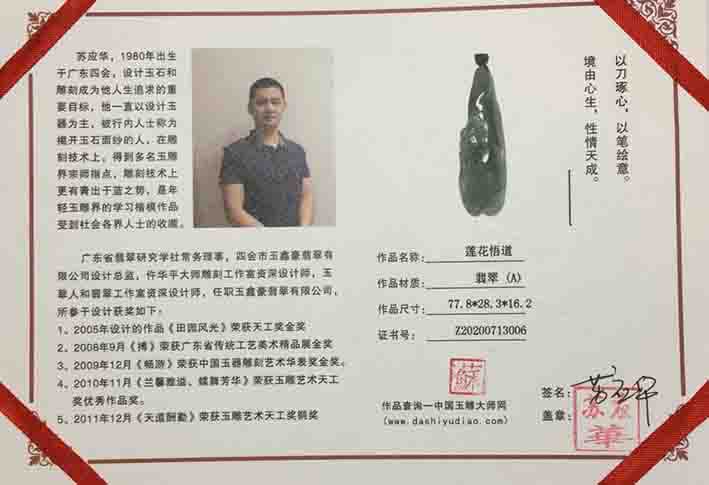 苏应华，1980年出生
于广东四会，设计玉石和
雕刻成为他人生追求的重
要目标，他一直以设计玉
器为主，被行内人士称为
揭开玉石面纱的人，在雕
刻技术上，得到多名玉雕
界宗师指点，雕刻技术上
更有青出于蓝之势，是年
轻玉雕界的学习楷模作品
受到社会各界人士的收藏。
广东省翡翠研究学社常务理事，四会市玉鑫豪翡翠有
限公司设计总监，仵华平大师雕刻工作室资深设计师，玉
翠人和翡翠工作室资深设计师，任职玉鑫豪翡翠有限公司，
所参于设计获奖如下：
1、2005年设计的作品《田园风光》荣获天工奖金奖
2、2008年9月《搏》荣获广东省传统工艺美术精品展金奖
3、2009年12月《畅游》荣获中国玉器雕刻艺术华发奖金奖。
4、2010年11月《兰馨雅谥、蝶舞芳华》荣获玉雕艺术天工
奖优秀作品奖。
5、2011年12月《天道酬勤》荣获玉雕艺术天工奖铜奖
以刀琢心，以笔绘意。
境由心生，性情天成。
作品名称： 莲花悟道
作品材质： 翡翠（A）
作品尺寸： 77.8*28.3*16.2
证书号： Z20200713006
蘇
作品查询一中国玉雕大师网
（www.dashiyudiao.com）
签名： 苏应华
盖章： 苏应華